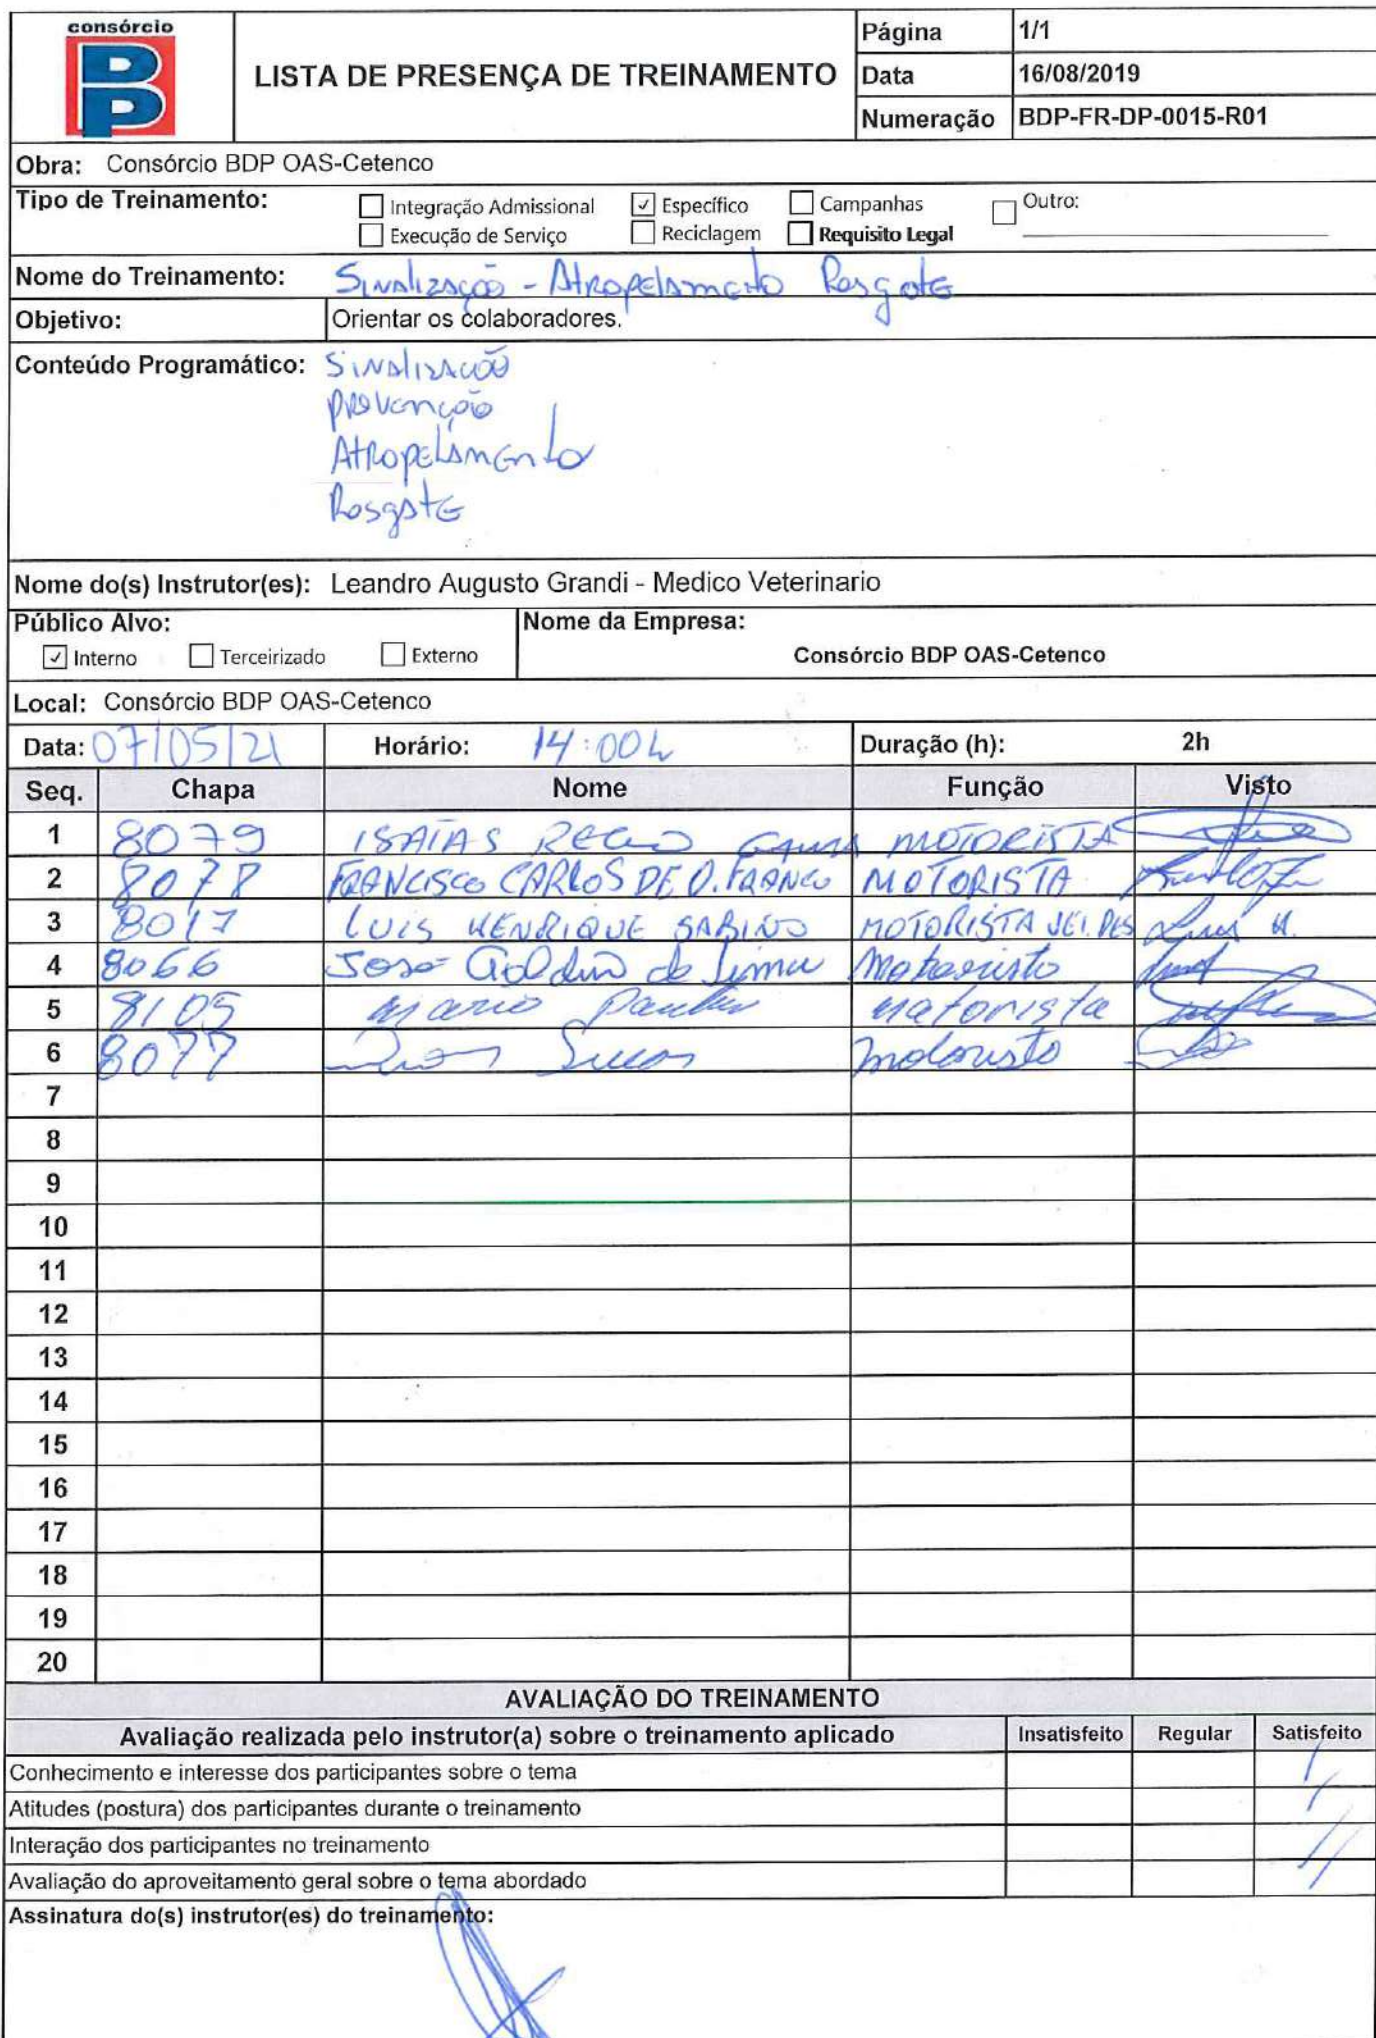 consórcio
BP
LISTA DE PRESENÇA DE TREINAMENTO
Página 1/1
Data 16/08/2019
Numeração BDP-FR-DP-0015-R01
Obra: Consórcio BDP OAS-Cetenco
Tipo de Treinamento:
Integração Admissional ✓ Específico Campanhas Outro:
Execução de Serviço Reciclagem Requisito Legal
Nome do Treinamento: Sinalização - Atropelamento Resgate
Objetivo: Orientar os colaboradores.
Conteúdo Programático: Sinalização
prevenção
Atropelamento
Resgate
Nome do(s) Instrutor(es): Leandro Augusto Grandi - Medico Veterinario
Público Alvo: Nome da Empresa:
✓ Interno Terceirizado Externo Consórcio BDP OAS-Cetenco
Local: Consórcio BDP OAS-Cetenco
Data: 07/05/21 Horário: 14:00h Duração (h): 2h
Seq. Chapa Nome Função Visto
1 8079 ISAIAS MOTORISTA
2 8078 FRANCISCO CARLOS DE O. FRANCO MOTORISTA
3 8017 LUIS HENRIQUE SABINO MOTORISTA VEI. PES Luis H.
4 8066 José de Lima Motoristo
5 8105 Mario motorista
6 8077 motoristo
7
8
9
10
11
12
13
14
15
16
17
18
19
20
AVALIAÇÃO DO TREINAMENTO
Avaliação realizada pelo instrutor(a) sobre o treinamento aplicado Insatisfeito Regular Satisfeito
Conhecimento e interesse dos participantes sobre o tema
Atitudes (postura) dos participantes durante o treinamento
Interação dos participantes no treinamento
Avaliação do aproveitamento geral sobre o tema abordado
Assinatura do(s) instrutor(es) do treinamento: